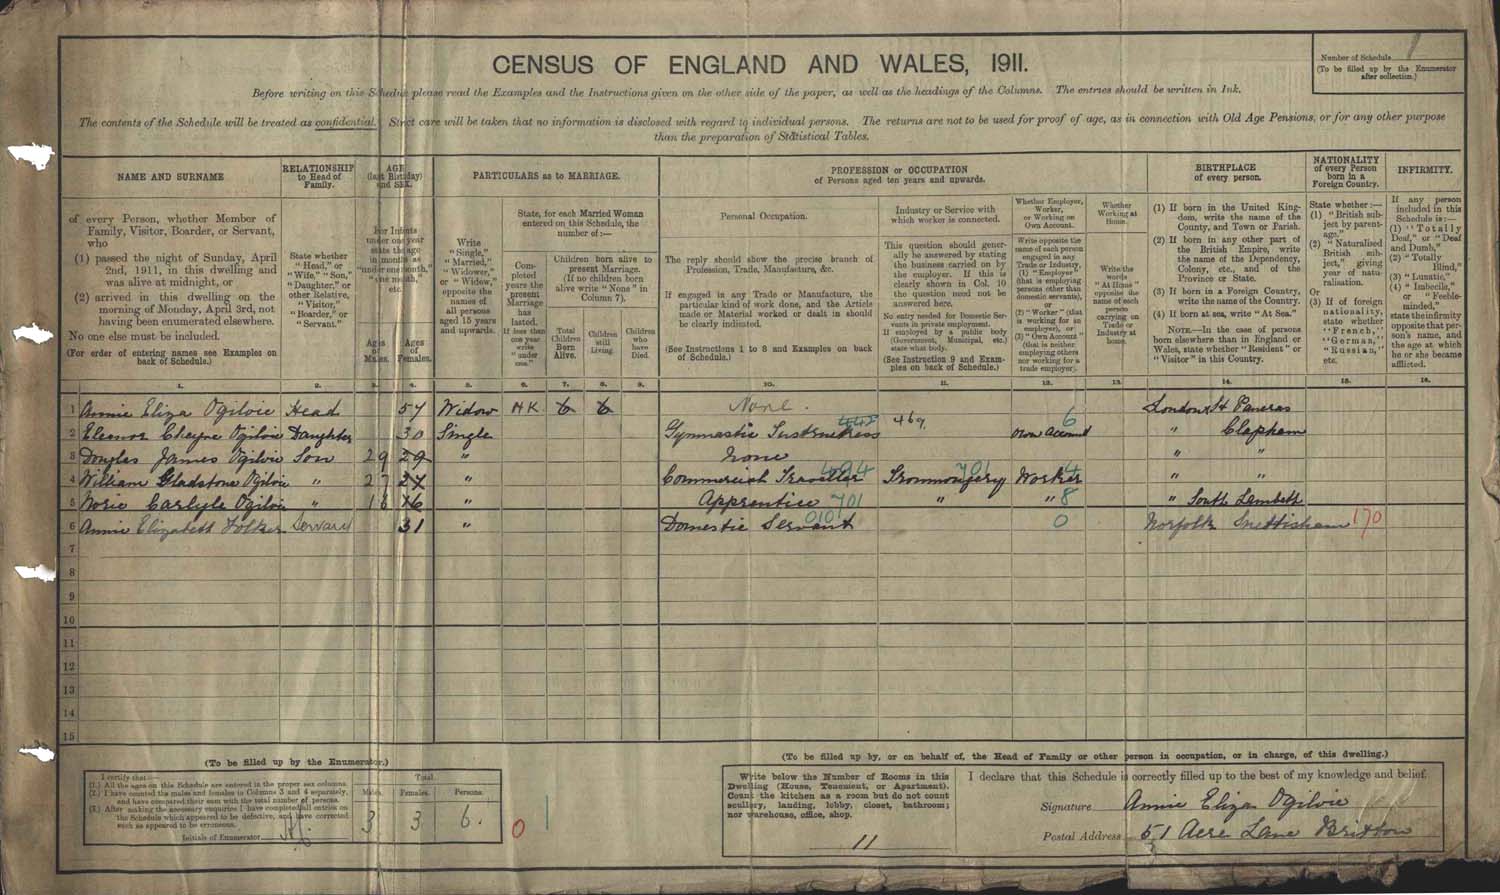 CENSUS OF ENGLAND AND WALES, 1911.
Number of Schedule
(To be filled up by the Enumerator
after collection.)
Before writing on this Schedule please read the Examples and the Instructions given on the other side of the paper, as well as the headings of the Columns. The entries should be written in Ink.
The contents of the Schedule will be treated as confidential. Strict care will be taken that no information is disclosed with regard to individual persons. The returns are not to be used for proof of age, as in connection with Old Age Pensions, or for any other purpose
than the preparation of Statistical Tables.
NAME AND SURNAME
of every Person, whether Member of
Family, Visitor, Boarder, or Servant,
who
(1) passed the night of Sunday, April
2nd, 1911, in this dwelling and
was alive at midnight, or
(2) arrived in this dwelling on the
morning of Monday, April 3rd, not
having been enumerated elsewhere.
No one else must be included.
(For order of entering names see Examples on
back of Schedule.)
RELATIONSHIP
to Head of
Family.
State whether
"Head," or
"Wife," "Son,"
"Daughter," or
other Relative,
"Visitor,"
"Boarder," or
"Servant."
AGE
(last Birthday)
and SEX.
For Infants
under one year
state the age
in months as
"under one month,"
"one month,"
etc.
Ages
of
Males.
Ages
of
Females.
PARTICULARS as to MARRIAGE.
Write
"Single,"
"Married,"
"Widower,"
or "Widow,"
opposite the
names of
all persons
aged 15 years
and upwards.
State, for each Married Woman
entered on this Schedule, the
number of:—
Com-
pleted
years the
present
Marriage
has
lasted.
If less than
one year
write
"under
one."
Children born alive to
present Marriage.
(If no children born
alive write "None" in
Column 7).
Total
Children
Born
Alive.
Children
still
Living.
Children
who
have
Died.
PROFESSION or OCCUPATION
of Persons aged ten years and upwards.
Personal Occupation.
The reply should show the precise branch of
Profession, Trade, Manufacture, &c.
If engaged in any Trade or Manufacture, the
particular kind of work done, and the Article
made or Material worked or dealt in should
be clearly indicated.
(See Instructions 1 to 8 and Examples on back
of Schedule.)
Industry or Service with
which worker is connected.
This question should gener-
ally be answered by stating
the business carried on by
the employer. If this is
clearly shown in Col. 10
the question need not be
answered here.
No entry needed for Domestic Ser-
vants in private employment.
If employed by a public body
(Government, Municipal, etc.)
state what body.
(See Instruction 9 and Exam-
ples on back of Schedule.)
Whether Employer,
Worker,
or Working on
Own Account.
Write opposite the
name of each person
engaged in any
Trade or Industry,
(1) "Employer"
(that is employing
persons other than
domestic servants),
or
(2) "Worker" (that
is working for an
employer), or
(3) "Own Account"
(that is neither
employing others
nor working for a
trade employer).
Whether
Working at
Home.
Write the
words
"At Home"
opposite the
name of each
person
carrying on
Trade or
Industry at
home.
BIRTHPLACE
of every person.
(1) If born in the United King-
dom, write the name of the
County, and Town or Parish.
(2) If born in any other part of
the British Empire, write
the name of the Dependency,
Colony, etc., and of the
Province or State.
(3) If born in a Foreign Country,
write the name of the Country.
(4) If born at sea, write "At Sea."
NOTE.—In the case of persons
born elsewhere than in England or
Wales, state whether "Resident" or
"Visitor" in this Country.
NATIONALITY
of every Person
born in a
Foreign Country.
State whether:—
(1) "British sub-
ject by parent-
age,"
(2) "Naturalised
British sub-
ject," giving
year of natu-
ralisation.
Or
(3) If of foreign
nationality,
state whether
"French,"
"German,"
"Russian,"
etc.
INFIRMITY.
If any person
included in this
Schedule is:—
(1) "Totally
Deaf," or "Deaf
and Dumb,"
(2) "Totally
Blind,"
(3) "Lunatic,"
(4) "Imbecile,"
or "Feeble-
minded,"
state the infirmity
opposite that per-
son's name, and
the age at which
he or she became
afflicted.
1. 2. 3. 4. 5. 6. 7. 8. 9. 10. 11. 12. 13. 14. 15. 16.
1 Annie Eliza Ogilvie Head 57 Widow 6 6 None. London St Pancras
2 Eleanor Cheyne Ogilvie Daughter 30 Single Gymnastic Instructress 442 469 own account 6 " Clapham
3 Douglas James Ogilvie Son 29 29 " None " "
4 William Gladstone Ogilvie " 27 27 " Commercial Traveller 494 Ironmongery 701 Worker 4 " "
5 Norie Carlyle Ogilvie " 18 " Apprentice 701 " " 8 " South Lambeth
6 Annie Elizabeth Folker Servant 31 " Domestic Servant 010 0 Norfolk Snettisham 170
7
8
9
10
11
12
13
14
15
(To be filled up by the Enumerator.)
I certify that:—
(1.) All the ages on this Schedule are entered in the proper sex columns.
(2.) I have counted the males and females in Columns 3 and 4 separately,
and have compared their sum with the total number of persons.
(3.) After making the necessary enquiries I have completed all entries on
the Schedule which appeared to be defective, and have corrected
such as appeared to be erroneous.
Initials of Enumerator
Total.
Males. Females. Persons.
3 3 6.
0 1
(To be filled up by, or on behalf of, the Head of Family or other person in occupation, or in charge, of this dwelling.)
Write below the Number of Rooms in this
Dwelling (House, Tenement, or Apartment).
Count the kitchen as a room but do not count
scullery, landing, lobby, closet, bathroom;
nor warehouse, office, shop.
11
I declare that this Schedule is correctly filled up to the best of my knowledge and belief.
Signature Annie Eliza Ogilvie
Postal Address 51 Acre Lane Brixton